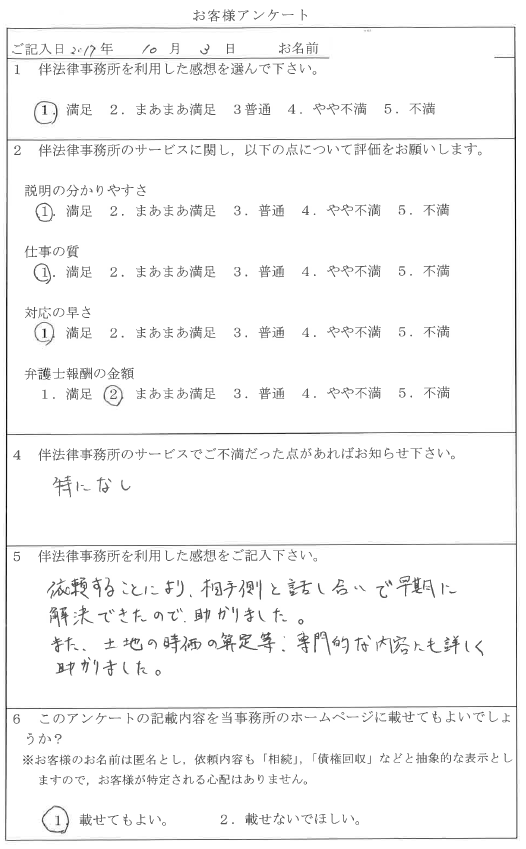 お客様アンケート
ご記入日 2017年 10月 3日 お名前
1 伴法律事務所を利用した感想を選んで下さい。
1. 満足 2. まあまあ満足 3普通 4. やや不満 5. 不満
2 伴法律事務所のサービスに関し，以下の点について評価をお願いします。
説明の分かりやすさ
1. 満足 2. まあまあ満足 3. 普通 4. やや不満 5. 不満
仕事の質
1. 満足 2. まあまあ満足 3. 普通 4. やや不満 5. 不満
対応の早さ
1. 満足 2. まあまあ満足 3. 普通 4. やや不満 5. 不満
弁護士報酬の金額
1. 満足 2. まあまあ満足 3. 普通 4. やや不満 5. 不満
4 伴法律事務所のサービスでご不満だった点があればお知らせ下さい。
特になし
5 伴法律事務所を利用した感想をご記入下さい。
依頼することにより、相手側と話し合いで早期に
解決できたので、助かりました。
また、土地の時価の算定等、専門的な内容にも詳しく
助かりました。
6 このアンケートの記載内容を当事務所のホームページに載せてもよいでしょ
うか？
※お客様のお名前は匿名とし，依頼内容も「相続」，「債権回収」などと抽象的な表示とし
ますので，お客様が特定される心配はありません。
1. 載せてもよい。 2. 載せないでほしい。